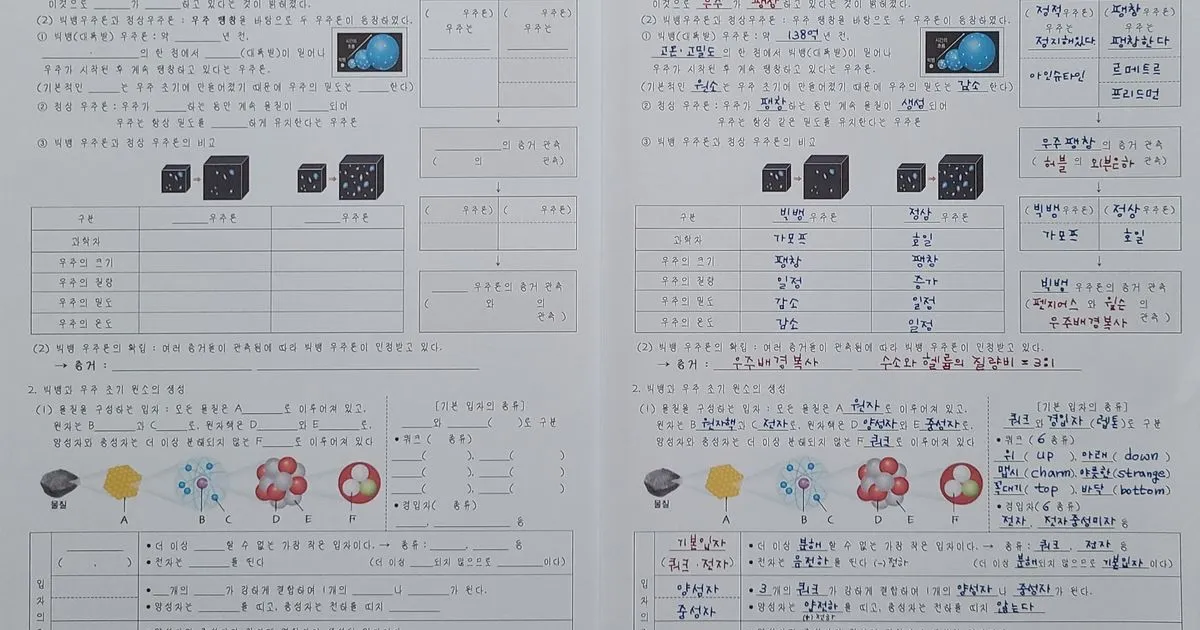 이것으로 ______가 ______하고 있다는 것이 밝혀졌다.
(2) 빅뱅우주론과 정상우주론 : 우주 팽창을 바탕으로 두 우주론이 등장하였다.
① 빅뱅(대폭발) 우주론 : 약 ______년 전,
______의 한 점에서 ______(대폭발)이 일어나
우주가 시작된 후 계속 팽창하고 있다는 우주론.
(기본적인 ____는 우주 초기에 만들어졌기 때문에 우주의 밀도는 ____한다)
② 정상 우주론 : 우주가 ____하는 동안 계속 물질이 ____되어
우주는 항상 밀도를 ____하게 유지한다는 우주론
③ 빅뱅 우주론과 정상 우주론의 비교
구분 ____우주론 ____우주론
과학자
우주의 크기
우주의 질량
우주의 밀도
우주의 온도
( 우주론) ( 우주론)
우주는 우주는
↓
______의 증거 관측
( 의 관측)
↓
( 우주론) ( 우주론)
↓
____ 우주론의 증거 관측
( 와 의
관측 )
(2) 빅뱅 우주론의 확립 : 여러 증거들이 관측됨에 따라 빅뱅 우주론이 인정받고 있다.
→ 증거 : ______ ______
2. 빅뱅과 우주 초기 원소의 생성
(1) 물질을 구성하는 입자 : 모든 물질은 A____로 이루어져 있고,
원자는 B____과 C____로, 원자핵은 D____와 E____로,
양성자와 중성자는 더 이상 분해되지 않는 F____로 이루어져 있다
[기본 입자의 종류]
____와 ____( )로 구분
• 쿼크 ( 종류)
____( ), ____( )
____( ), ____( )
____( ), ____( )
• 경입자( 종류)
____, ______ 등
물질 A B C D E F
( , )
• 더 이상 ____할 수 없는 가장 작은 입자이다. → 종류 : ____, ____ 등
• 전자는 ____를 띤다 (더 이상 ____되지 않으므로 ____이다)
입
자
의
• __개의 ____가 강하게 결합하여 1개의 ____나 ____가 된다.
• 양성자는 ____를 띠고, 중성자는 전하를 띠지 ____
이것으로 우주 가 팽창 하고 있다는 것이 밝혀졌다.
(2) 빅뱅우주론과 정상우주론 : 우주 팽창을 바탕으로 두 우주론이 등장하였다.
① 빅뱅(대폭발) 우주론 : 약 138억 년 전,
고온·고밀도 의 한 점에서 빅뱅(대폭발)이 일어나
우주가 시작된 후 계속 팽창하고 있다는 우주론.
(기본적인 원소 는 우주 초기에 만들어졌기 때문에 우주의 밀도는 감소 한다)
② 정상 우주론 : 우주가 팽창 하는 동안 계속 물질이 생성 되어
우주는 항상 같은 밀도를 유지한다는 우주론
③ 빅뱅 우주론과 정상 우주론의 비교
구분 빅뱅 우주론 정상 우주론
과학자 가모프 호일
우주의 크기 팽창 팽창
우주의 질량 일정 증가
우주의 밀도 감소 일정
우주의 온도 감소 일정
(정적우주론) (팽창우주론)
우주는 우주는
정지해있다. 팽창한다
아인슈타인 르메트르
프리드먼
↓
우주 팽창 의 증거 관측
( 허블 의 외부은하 관측)
↓
(빅뱅우주론) (정상우주론)
가모프 호일
↓
빅뱅 우주론의 증거 관측
(펜지어스 와 윌슨 의
우주배경복사 관측 )
(2) 빅뱅 우주론의 확립 : 여러 증거들이 관측됨에 따라 빅뱅 우주론이 인정받고 있다.
→ 증거 : 우주배경 복사 수소와 헬륨의 질량비 = 3:1
2. 빅뱅과 우주 초기 원소의 생성
(1) 물질을 구성하는 입자 : 모든 물질은 A 원자 로 이루어져 있고,
원자는 B 원자핵 과 C 전자 로, 원자핵은 D 양성자 와 E 중성자 로,
양성자와 중성자는 더 이상 분해되지 않는 F 쿼크 로 이루어져 있다
[기본 입자의 종류]
쿼크 와 경입자 (렙톤)로 구분
• 쿼크 ( 6 종류)
위 ( up ), 아래 ( down )
맵시 (charm), 야릇한 (strange)
꼭대기 ( top ), 바닥 (bottom)
• 경입자( 6 종류)
전자, 전자중성미자 등
물질 A B C D E F
기본입자
(쿼크 · 전자)
• 더 이상 분해 할 수 없는 가장 작은 입자이다. → 종류 : 쿼크, 전자 등
• 전자는 음전하 를 띤다 (-)전하 (더 이상 분해되지 않으므로 기본입자 이다)
입
자
의
양성자
중성자
• 3 개의 쿼크 가 강하게 결합하여 1개의 양성자 나 중성자 가 된다.
• 양성자는 양전하 를 띠고, 중성자는 전하를 띠지 않는다
(+)전하